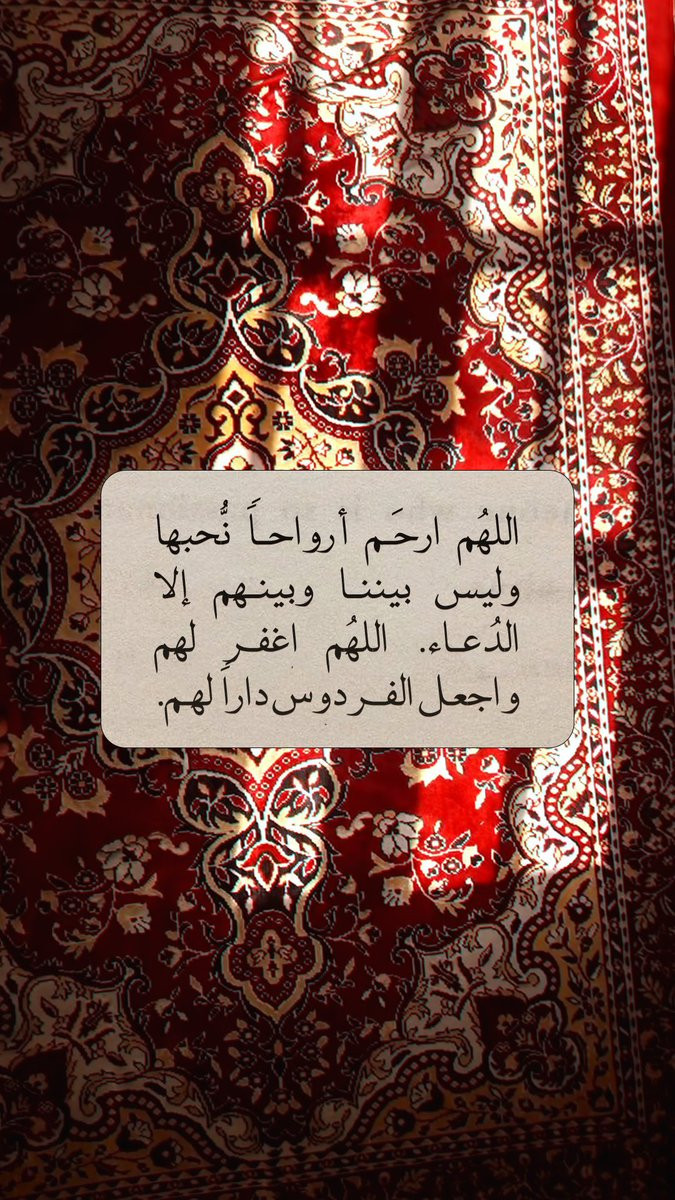 اللهُم ارحَم أرواحاً نُّحبها
وليس بيننا وبينهم إلا
الدُعاء. اللهُم اغفر لهم
واجعل الفردوس داراً لهم.